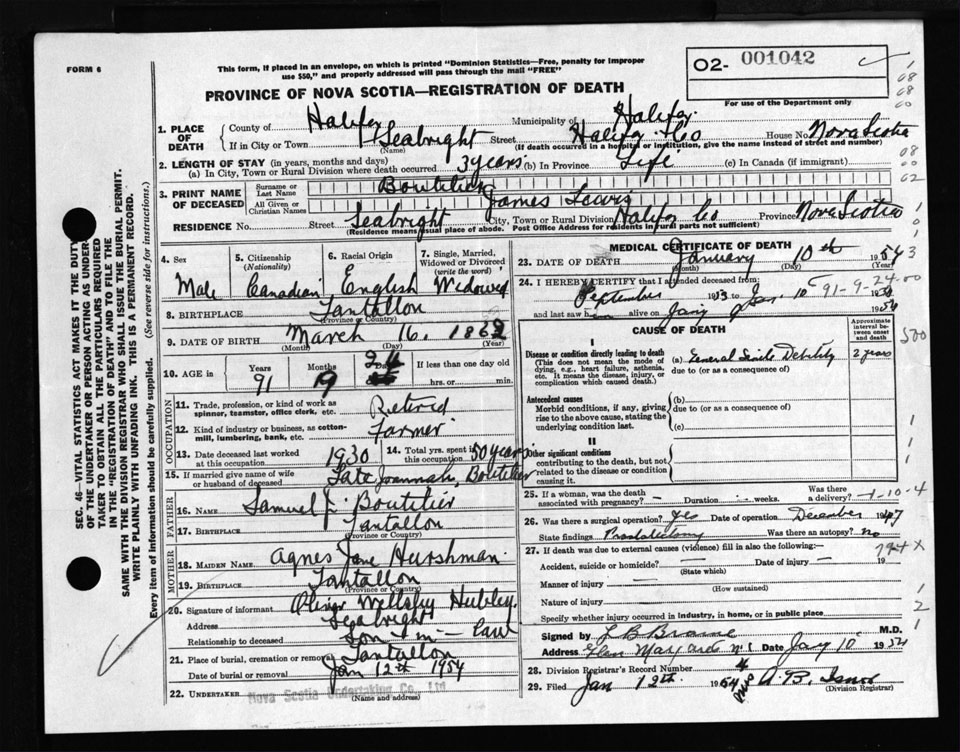 FORM 6
This form, if placed in an envelope, on which is printed "Dominion Statistics—Free, penalty for improper
use $50," and properly addressed will pass through the mail "FREE"
O2- 001042
For use of the Department only
PROVINCE OF NOVA SCOTIA—REGISTRATION OF DEATH
1. PLACE OF DEATH
County of Halifax Municipality of Halifax
If in City or Town Seabright Street Halifax Co House No. Nova Scotia
(Name) (If death occurred in a hospital or institution, give the name instead of street and number)
2. LENGTH OF STAY (in years, months and days)
(a) In City, Town or Rural Division where death occurred 3 years (b) In Province Life (c) In Canada (if immigrant)
3. PRINT NAME OF DECEASED
Surname or Last Name Boutilier
All Given or Christian Names James Lewis
RESIDENCE No. Street Seabright City, Town or Rural Division Halifax Co Province Nova Scotia
(Residence means usual place of abode. Post Office Address for residents in rural parts not sufficient)
4. Sex
Male
5. Citizenship
(Nationality)
Canadian
6. Racial Origin
English
7. Single, Married,
Widowed or Divorced
(write the word)
Widowed
8. BIRTHPLACE Tantallon
(Province or Country)
9. DATE OF BIRTH March 16. 1862
(Month) (Day) (Year)
10. AGE in Years Months Days
91
hrs. or min.
OCCUPATION
11. Trade, profession, or kind of work as
spinner, teamster, office clerk, etc. Retired
12. Kind of industry or business, as cotton-
mill, lumbering, bank, etc. Farmer
13. Date deceased last worked
at this occupation 1930
14. Total yrs. spent in
this occupation 50 years
15. If married give name of wife
or husband of deceased Late Joannah, Boutilier
FATHER
16. NAME Samuel J Boutilier
17. BIRTHPLACE Tantallon
(Province or Country)
MOTHER
18. MAIDEN NAME Agnes Jane Hurshman
19. BIRTHPLACE Tantallon
(Province or Country)
20. Signature of informant Oliver Wellsby Hubley
Address Seabright
Relationship to deceased Son-in-Law
21. Place of burial, cremation or removal Tantallon
Date of burial or removal Jan 12th 1954
22. UNDERTAKER Nova Scotia Undertaking Co., Ltd
(Name and address)
MEDICAL CERTIFICATE OF DEATH
23. DATE OF DEATH January 10th 1954
(Month) (Day) (Year)
24. I HEREBY CERTIFY that I attended deceased from:
September 1953 to Jan 10
91-9-24-00
and last saw him alive on Jany
CAUSE OF DEATH
Approximate
interval be-
tween onset
and death
I
Disease or condition directly leading to death
(This does not mean the mode of
dying, e.g., heart failure, asthenia,
etc. It means the disease, injury, or
complication which caused death.)
(a) General Senile Debility 2 years
due to (or as a consequence of)
Antecedent causes
Morbid conditions, if any, giving
rise to the above cause, stating the
underlying condition last.
(b)
due to (or as a consequence of)
(c)
II
Other significant conditions
contributing to the death, but not
related to the disease or condition
causing it.
25. If a woman, was the death
associated with pregnancy? — Duration - weeks. Was there
a delivery?
1-10-4
26. Was there a surgical operation? yes Date of operation December 1947
State findings Prostatectomy Was there an autopsy? No
27. If death was due to external causes (violence) fill in also the following:—
794X
Accident, suicide or homicide? — Date of injury — 19
(State which)
Manner of injury —
(How sustained)
Nature of injury —
Specify whether injury occurred in industry, in home, or in public place
Signed by M.D.
Address Glen Margaret Date Jany 10 1954
28. Division Registrar's Record Number 4
29. Filed Jan 12th 1954 Mrs A. B.
(Division Registrar)
SEC. 46—VITAL STATISTICS ACT MAKES IT THE DUTY
OF THE UNDERTAKER OR PERSON ACTING AS UNDER-
TAKER TO OBTAIN ALL THE PARTICULARS REQUIRED
IN THE "REGISTRATION OF DEATH" AND TO FILE THE
SAME WITH THE DIVISION REGISTRAR WHO SHALL ISSUE THE BURIAL PERMIT.
WRITE PLAINLY WITH UNFADING INK. THIS IS A PERMANENT RECORD.
Every item of information should be carefully supplied. (See reverse side for instructions.)